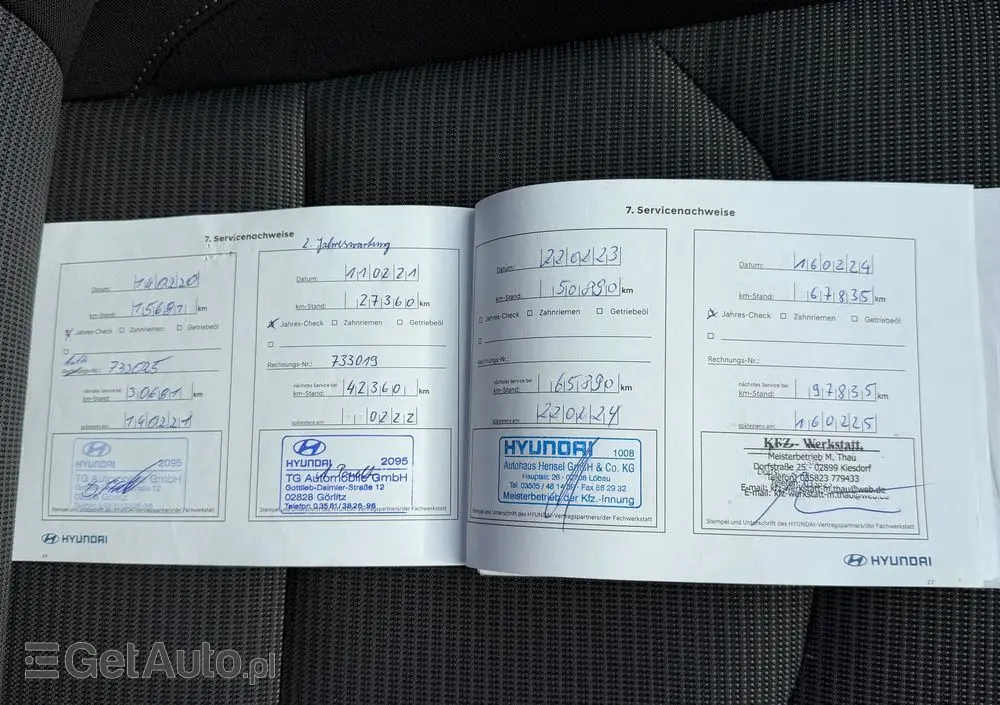 7. Servicenachweise
Datum: 14 02 20
km-Stand: 15681 km
Jahres-Check Zahnriemen Getriebeöl
Rechnungs-Nr.: 733025
nächstes Service bei
km-Stand: 30681 km
spätestens am: 14 02 21
HYUNDAI 2095
TG Automobile GmbH
Stempel und Unterschrift des HYUNDAI-Vertragspartners/der Fachwerkstatt
HYUNDAI
26
2. Jahreswartung
Datum: 11 02 21
km-Stand: 27360 km
Jahres-Check Zahnriemen Getriebeöl
Rechnungs-Nr.: 733019
nächstes Service bei
km-Stand: 42360 km
spätestens am: 02 22
HYUNDAI 2095
TG Automobile GmbH
Gottlieb-Daimler-Straße 12
02828 Görlitz
Telefon 03581/3826-96
Stempel und Unterschrift des HYUNDAI-Vertragspartners/der Fachwerkstatt
7. Servicenachweise
Datum: 22 02 23
km-Stand: 50890 km
Jahres-Check Zahnriemen Getriebeöl
Rechnungs-Nr.:
nächstes Service bei
km-Stand: 65890 km
spätestens am: 22 02 24
HYUNDAI 1008
Autohaus Hensel GmbH & Co. KG
Hauptstr. 26 · 02708 Löbau
Meisterbetrieb der Kfz.-Innung
Stempel und Unterschrift des HYUNDAI-Vertragspartners/der Fachwerkstatt
Datum: 16 02 24
km-Stand: 67835 km
Jahres-Check Zahnriemen Getriebeöl
Rechnungs-Nr.:
nächstes Service bei
km-Stand: 97835 km
spätestens am: 16 02 25
KFZ- Werkstatt.
Meisterbetrieb M. Thau
Dorfstraße 25 - 02899 Kiesdorf
Telefon: 035823 779433
E-mail: kfz-werkstatt-m.thau@web.de
Stempel und Unterschrift des HYUNDAI-Vertragspartners/der Fachwerkstatt
HYUNDAI
27
GetAuto.pl